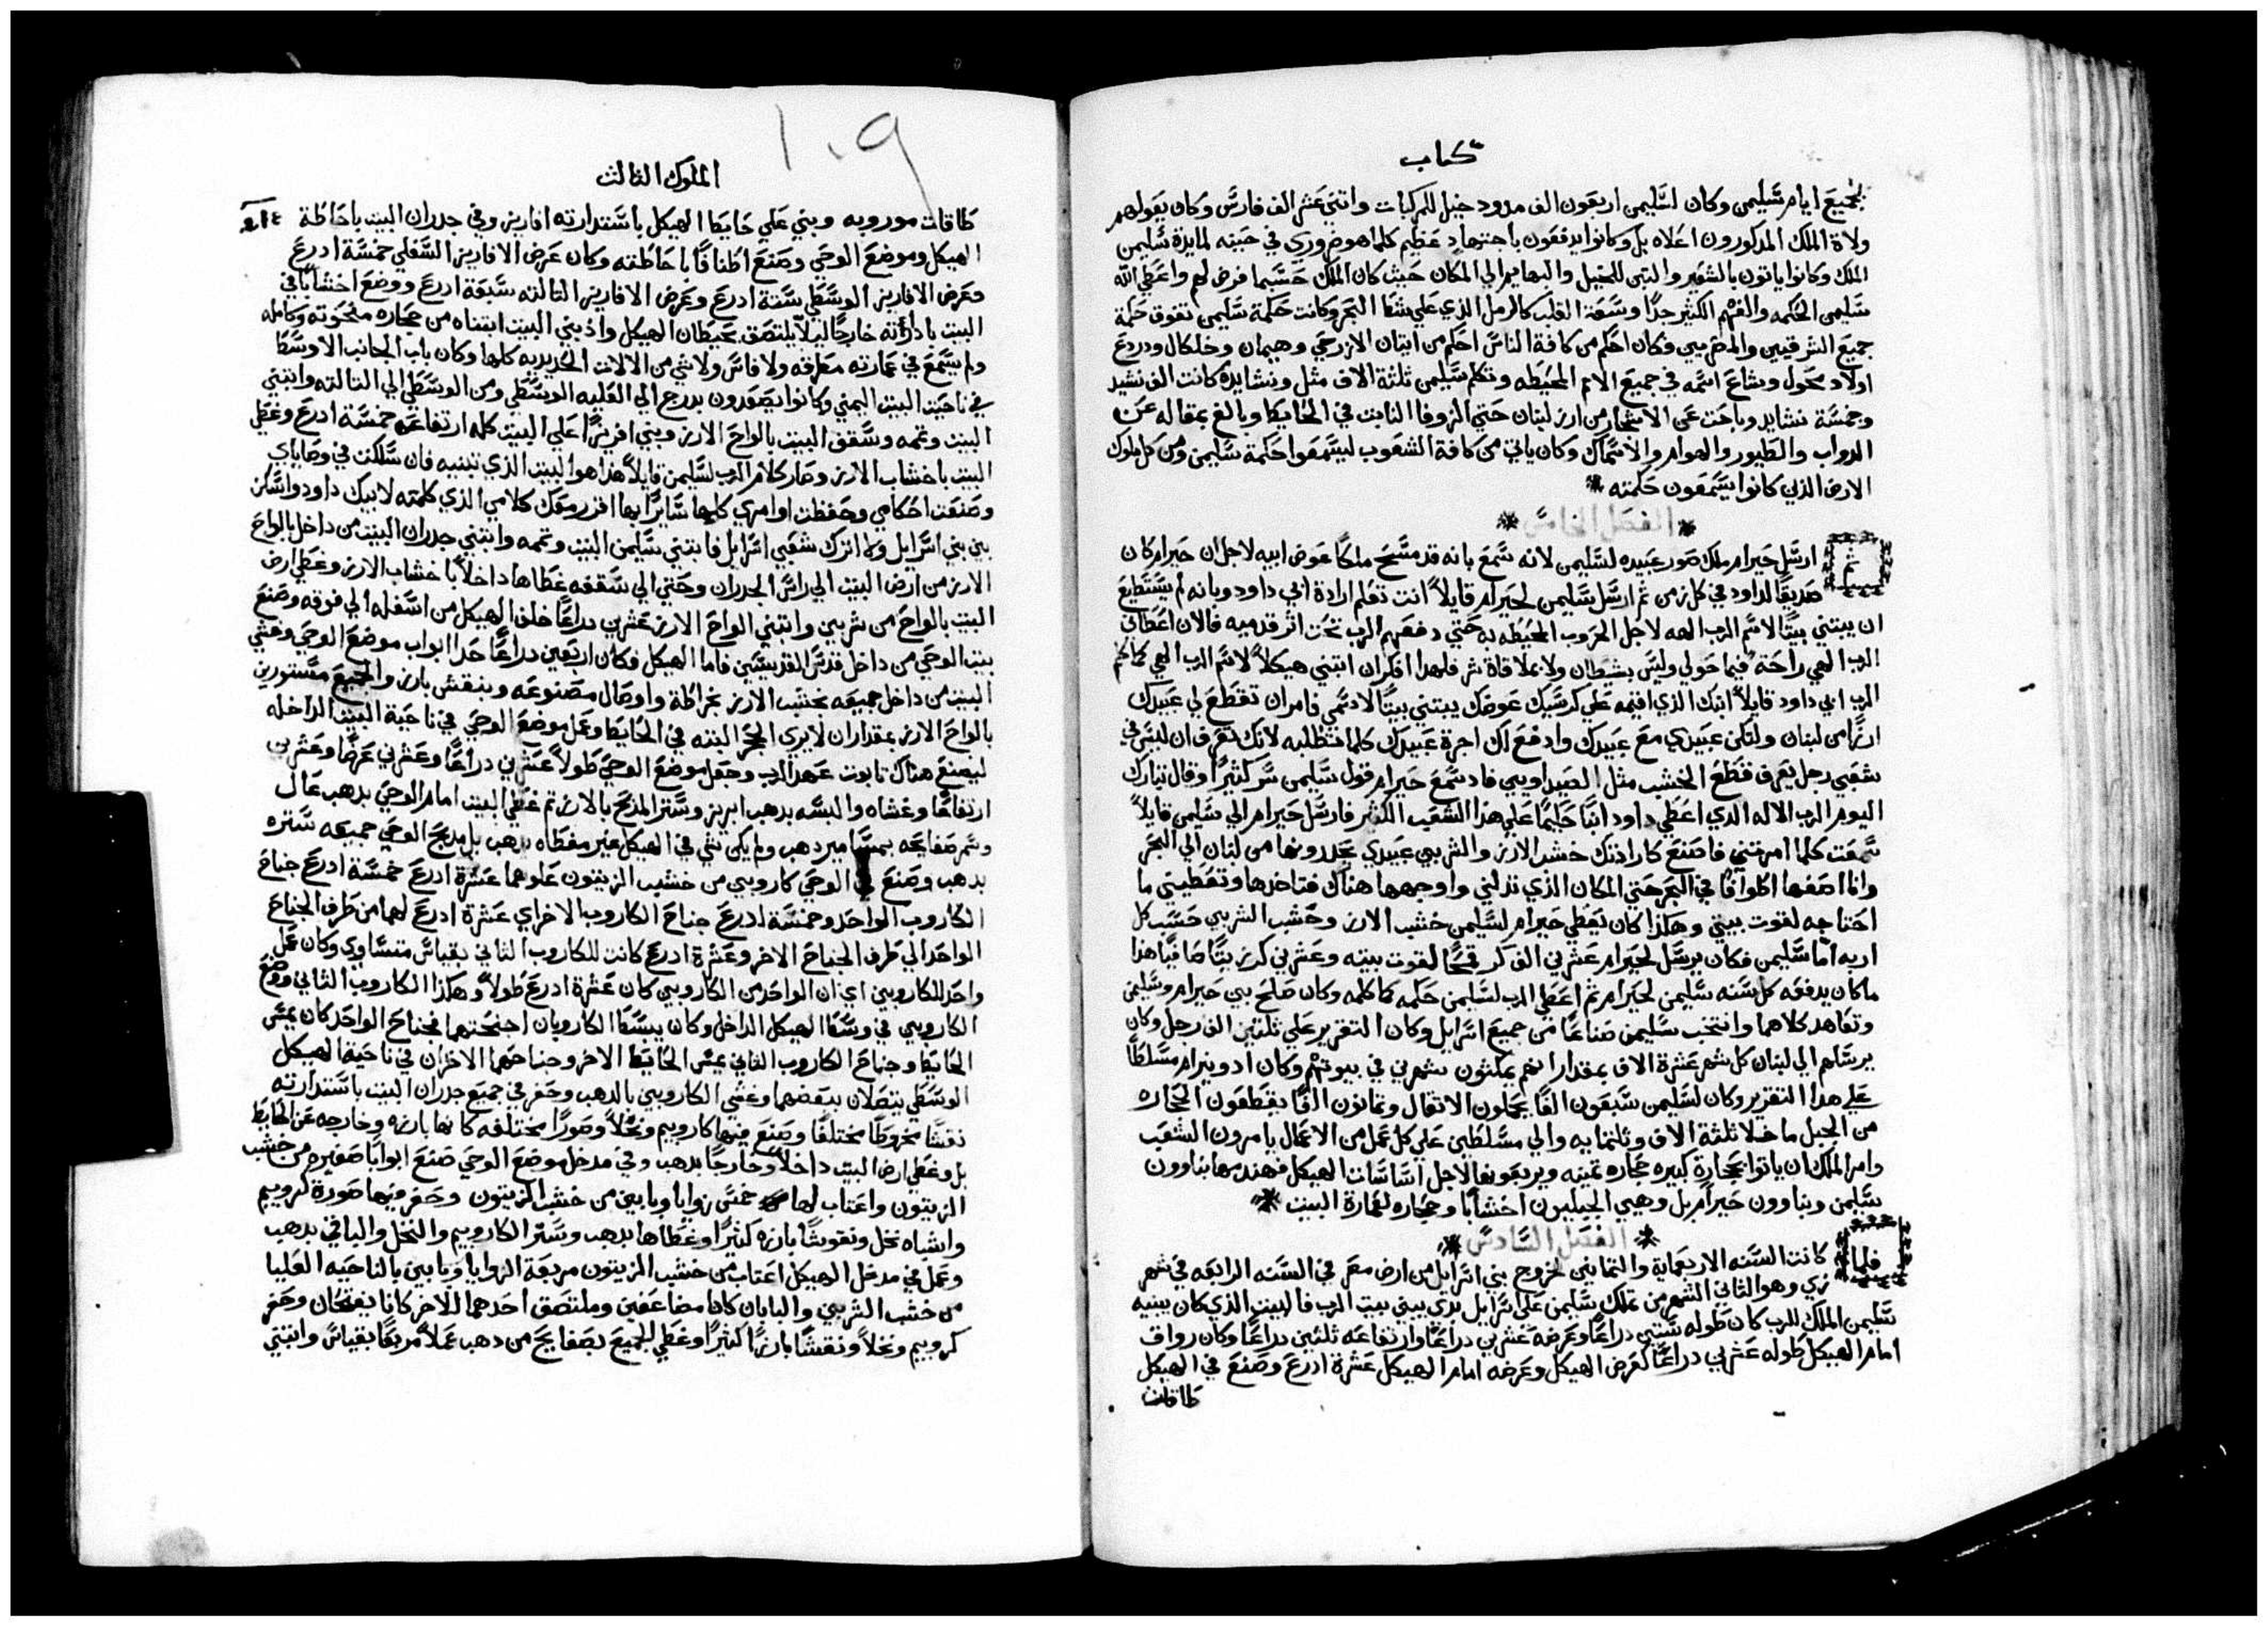 كتاب
لجميع ايام سليمن وكان لسليمن اربعون الف مدود خيل للمركبات واثني عشر الف فارس وكان يعولهم
ولاة الملك المدكورون اعلاه بل وكانوا يدفعون باجتهاد عظيم كلما هو ضروري في حينه لمايدة سليمن
الملك وكانوا ياتون بالشعير والتبن للخيل والبهايم الي المكان حيث كان الملك حسبما فرض لهم واعطي الله
سليمن الحكمه والفهم الكثير جدا وسعة القلب كالرمل الذي علي شط البحر وكانت حكمة سليمن تفوق حكمة
جميع الشرقيين والمصريين وكان احكم من كافة الناس احكم من ايتان الازرحي وهيمان وخلكال ودردع
اولاد محول وشاع اسمه في جميع الامم المحيطه وتكلم سليمن ثلثة الاف مثل ونشايده كانت الف نشيد
وخمسة نشايد وباحث عن الاشجار من ارز لبنان حتي الزوفا النابت في الحايط وبالغ بمقاله عن
الدواب والطيور والهوام والاسماك وكان ياتي من كافة الشعوب ليسمعوا حكمة سليمن ومن كل ملوك
الارض الذين كانوا يسمعون حكمته
الفصل الخامس
ثم ارسل حيرام ملك صور عبيده لسليمن لانه سمع بانه قد مسح ملكا عوض ابيه لاجل ان حيرام كان
صديقا لداود في كل زمن ثم ارسل سليمن لحيرام قايلا انت تعلم ارادة ابي داود وبانه لم يستطيع
ان يبتني بيتا لاسم الرب الهه لاجل الحروب المحيطه به حتي دفعهم الرب تحت اثر قدميه فالان اعطاني
الرب الهي راحة فيما حولي وليس بشيطان ولا بملاقاة شر فلهدا افكر ان ابتني هيكلا لاسم الرب الهي كما كلم
الرب ابي داود قايلا ابنك الذي اقيمه علي كرسيك عوضك يبتني بيتا لاسمي فامر ان تقطع لي عبيدك
ارزا من لبنان ولتكن عبيدي مع عبيدك وادفع لك اجرة عبيدك كلما تطلبه لانك تعرف ان ليس في
شعبي رجل يعرف قطع الخشب مثل الصيداويين فاد سمع حيرام قول سليمن سر كثيرا وقال تبارك
اليوم الرب الاله الدي اعطي داود ابنا حكيما علي هذا الشعب الكثير فارسل حيرام الي سليمن قايلا
سمعت كلما امرتني فاصنع كارادتك خشب الارز والشربين عبيدي يحدرونها من لبنان الي البحر
وانا اصفها اكلوافا في البحر حتي المكان الذي تدلني واوجهها هناك فتاخدها وتعطيني ما
احتاجه لقوت بيتي وهكذا كان يعطي حيرام لسليمن خشب الارز وخشب الشربين حسب كل
اربه اما سليمن فكان يرسل لحيرام عشرين الف كر قمحا لقوت بيته وعشرين كر زيتا صافيا هذا
ما كان يدفعه كل سنه سليمن لحيرام ثم اعطي الرب لسليمن حكمه كما كلمه وكان صلح بين حيرام وسليمن
وتعاهد كلاهما وانتخب سليمن صناعا من جميع اسرايل وكان التقرير علي ثلثين الف رجل وكان
يرسلهم الي لبنان كل شهر عشرة الاف بمقدار انهم يمكثون شهرين في بيوتهم وكان ادونيرام مسلطا
علي هدا التقرير وكان لسليمن سبعون الفا يحملون الاتقال وثمانون الفا يقطعون الحجاره
من الجبل ما خلا ثلثة الاف وثلثمايه والي مسلطين علي كل عمل من الاعمال يامرون الشعب
وامر الملك ان ياتوا بحجارة كبيره حجاره تمينه ويربعونها لاجل اساسات الهيكل فهندمها بناوون
سليمن وبناوون حيرام بل وهيي الجبليون اخشابا وحجاره لعمارة البيت
الفصل السادس
فلما كانت السنه الاربعماية والثمانين لخروج بني اسرايل من ارض مصر في السنه الرابعه في شهر
زي وهو الثاني الشهر من تملك سليمن علي اسرايل بدي يبني بيت الرب فالبيت الذي كان يبنيه
سليمن الملك للرب كان طوله ستين دراعا وعرضه عشرين دراعا وارتفاعه ثلثين دراعا وكان رواق
امام الهيكل طوله عشرين دراعا كعرض الهيكل وعرضه امام الهيكل عشرة ادرع وصنع في الهيكل
طاقات
١٠٩
الملوك الثالث
طاقات موروبه وبني علي حايط الهيكل باستدارته افاريز وفي جدران البيت باحاطة
الهيكل وموضع الوحي وصنع اطنافا باحاطته وكان عرض الافاريز السفلي خمسة ادرع
وعرض الافاريز الوسطي ستة ادرع وعرض الافاريز الثالثه سبعة ادرع ووضع اخشابا في
البيت بادارته خارجا ليلا يلتصق بحيطان الهيكل واذ بني البيت ابتناه من حجاره منحوته وكامله
ولم يسمع في عمارته مطرقه ولا فاس ولا شي من الالات الحديديه كلها وكان باب الجانب الاوسط
في ناحيت البيت اليمني وكانوا يصعدون بدرج الي العليه الوسطي ومن الوسطي الي الثالثه وابتني
البيت وتمه وسقف البيت بالواح الارز وبني افريزا علي البيت كله ارتفاعه خمسة ادرع وغطي
البيت باخشاب الارز وصار كلام الرب لسليمن قايلا هدا هو البيت الذي تبنيه فان سلكت في وصاياي
وصنعت احكامي وحفظت اوامري كلها سايرا بها اقرر معك كلامي الذي كلمته لابيك داود واسكن
بين بني اسرايل ولا اترك شعبي اسرايل فابتني سليمن البيت وتمه وابتني جدران البيت من داخل بالواح
الارز من ارض البيت الي راس الجدران وحتي الي سقفه غطاها داخلا باخشاب الارز وغطي ارض
البيت بالواح من شربين وابتني الواح الارز عشرين دراعا خلف الهيكل من اسفله الي فوقه وصنع
بيت الوحي من داخل قدس القديسين فاما الهيكل فكان اربعين دراعا حدا ابواب موضع الوحي وغشي
البيت من داخل جميعه بخشب الارز بخراطة واوصال مصنوعه وبنقش بارز والجميع مستورين
بالواح الارز بمقدار ان لا يري الحجر البته في الحايط وعمل موضع الوحي في ناحية البيت الداخله
ليصنع هناك تابوت عهد الرب وجعل موضع الوحي طولا عشرين دراعا وعشرين عرضا وعشرين
ارتفاعا وغشاه والبسه بدهب ابريز وستر المدبح بالارز ثم غطي البيت امام الوحي بدهب عال
وسمر صفايحه بمسامير دهب ولم يكن شي في الهيكل غير مغطاه بدهب بل مدبح الوحي جميعه ستره
بدهب وصنع في الوحي كاروبين من خشب الزيتون علوهما عشرة ادرع خمسة ادرع جناح
الكاروب الواحد وخمسة ادرع جناح الكاروب الاخر اي عشرة ادرع لهما من طرف الجناح
الواحد الي طرف الجناح الاخر وعشرة ادرع كانت للكاروب الثاني بقياس متساوي وكان عمل
واحد للكاروبين اي ان الواحد من الكاروبين كان عشرة ادرع طولا وهكذا الكاروب الثاني ووضع
الكاروبين في وسط الهيكل الداخل وكان يبسط الكاروبان اجنحتهما فجناح الواحد كان يمس
الحايط وجناح الكاروب الثاني يمس الحايط الاخر وجناحهما الاخران في ناحية الهيكل
الوسطي يتصلان ببعضهما وغشي الكاروبين بالدهب وحفر في جميع جدران البيت باستدارته
نقشا مخروطا مختلفا وصنع فيها كاروبيم ونخلا وصورا مختلفه كانها بارزه وخارجه عن الحايط
بل وغطي ارض البيت داخلا وخارجا بدهب وفي مدخل موضع الوحي صنع ابوابا صغيره من خشب
الزيتون واعتاب لها خمس زوايا وبابين من خشب الزيتون وحفر فيها صورة كروبيم
واشباه نخل ونقوشا بارزه كثيرا وغطاها بدهب وستر الكاروبيم والنخل والباقي بدهب
وعمل في مدخل الهيكل اعتاب من خشب الزيتون مربعة الزوايا وبابين بالناحيه العليا
من خشب الشربين والبابان كانا مضاعفين وملتصق احدهما للاخر كانا يفتحان وحفر
كروبيم ونخلا ونقشا بارزا كثيرا وغطي الجميع بصفايح من دهب عملا مربعا بقياس وابتني